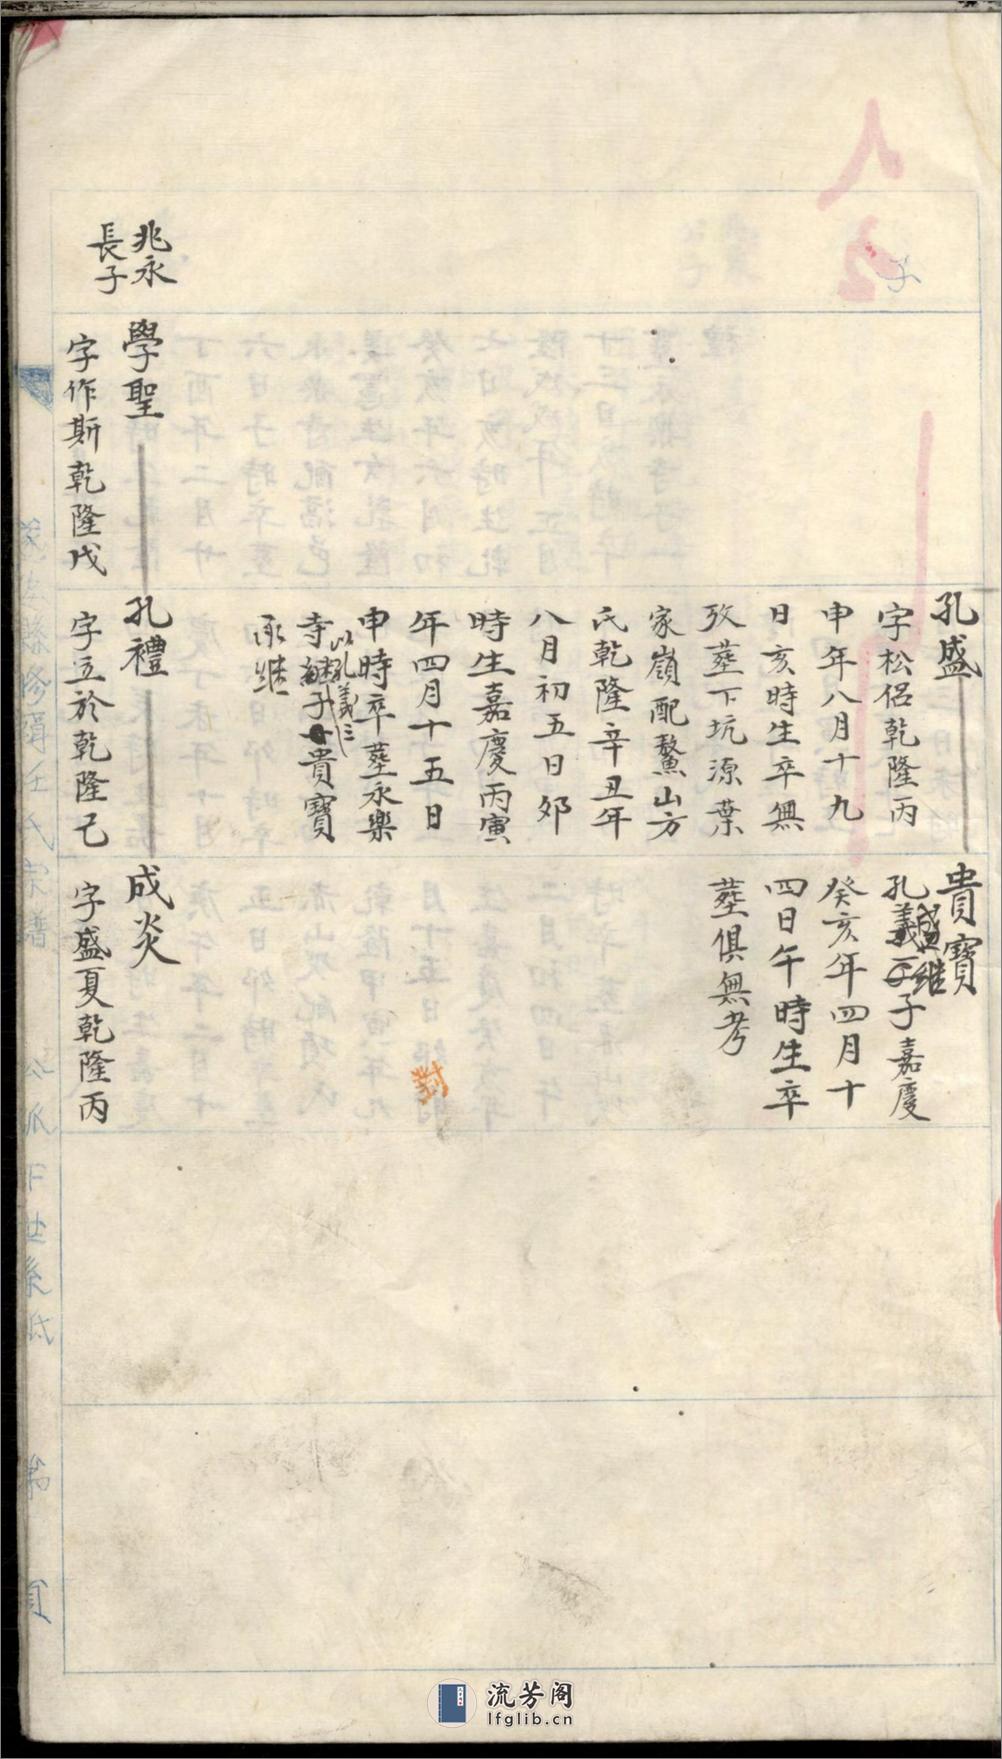 孔盛
字松侶乾隆丙
申年八月十九
日亥時生卒無
攷塟下坑源葉
家嶺配鰲山方
氏乾隆辛丑年
八月初五日夘
時生嘉慶丙寅
年四月十五日
申時卒塟永樂
寺繼子貴寶
以孔義三
承继
貴寶
孔盛继子嘉慶
癸亥年四月十
四日午時生卒
塟俱無考
對
兆永
長子
學聖
字作斯乾隆戊
孔禮
字立於乾隆己
成炎
字盛夏乾隆丙
流芳阁
lfglib.cn